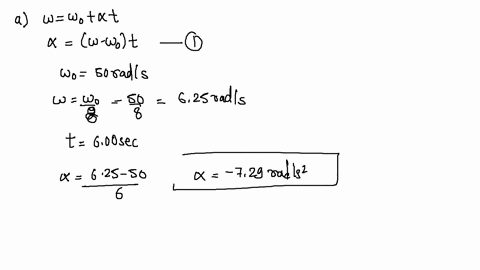 a) ω = ω₀ + αt
α = (ω-ω₀)t — ①
ω₀ = 50 rad/s
ω = ω₀/8 = 50/8 = 6.25 rad/s
t = 6.00 sec
α = 6.25-50/6 α = -7.29 rad/s²